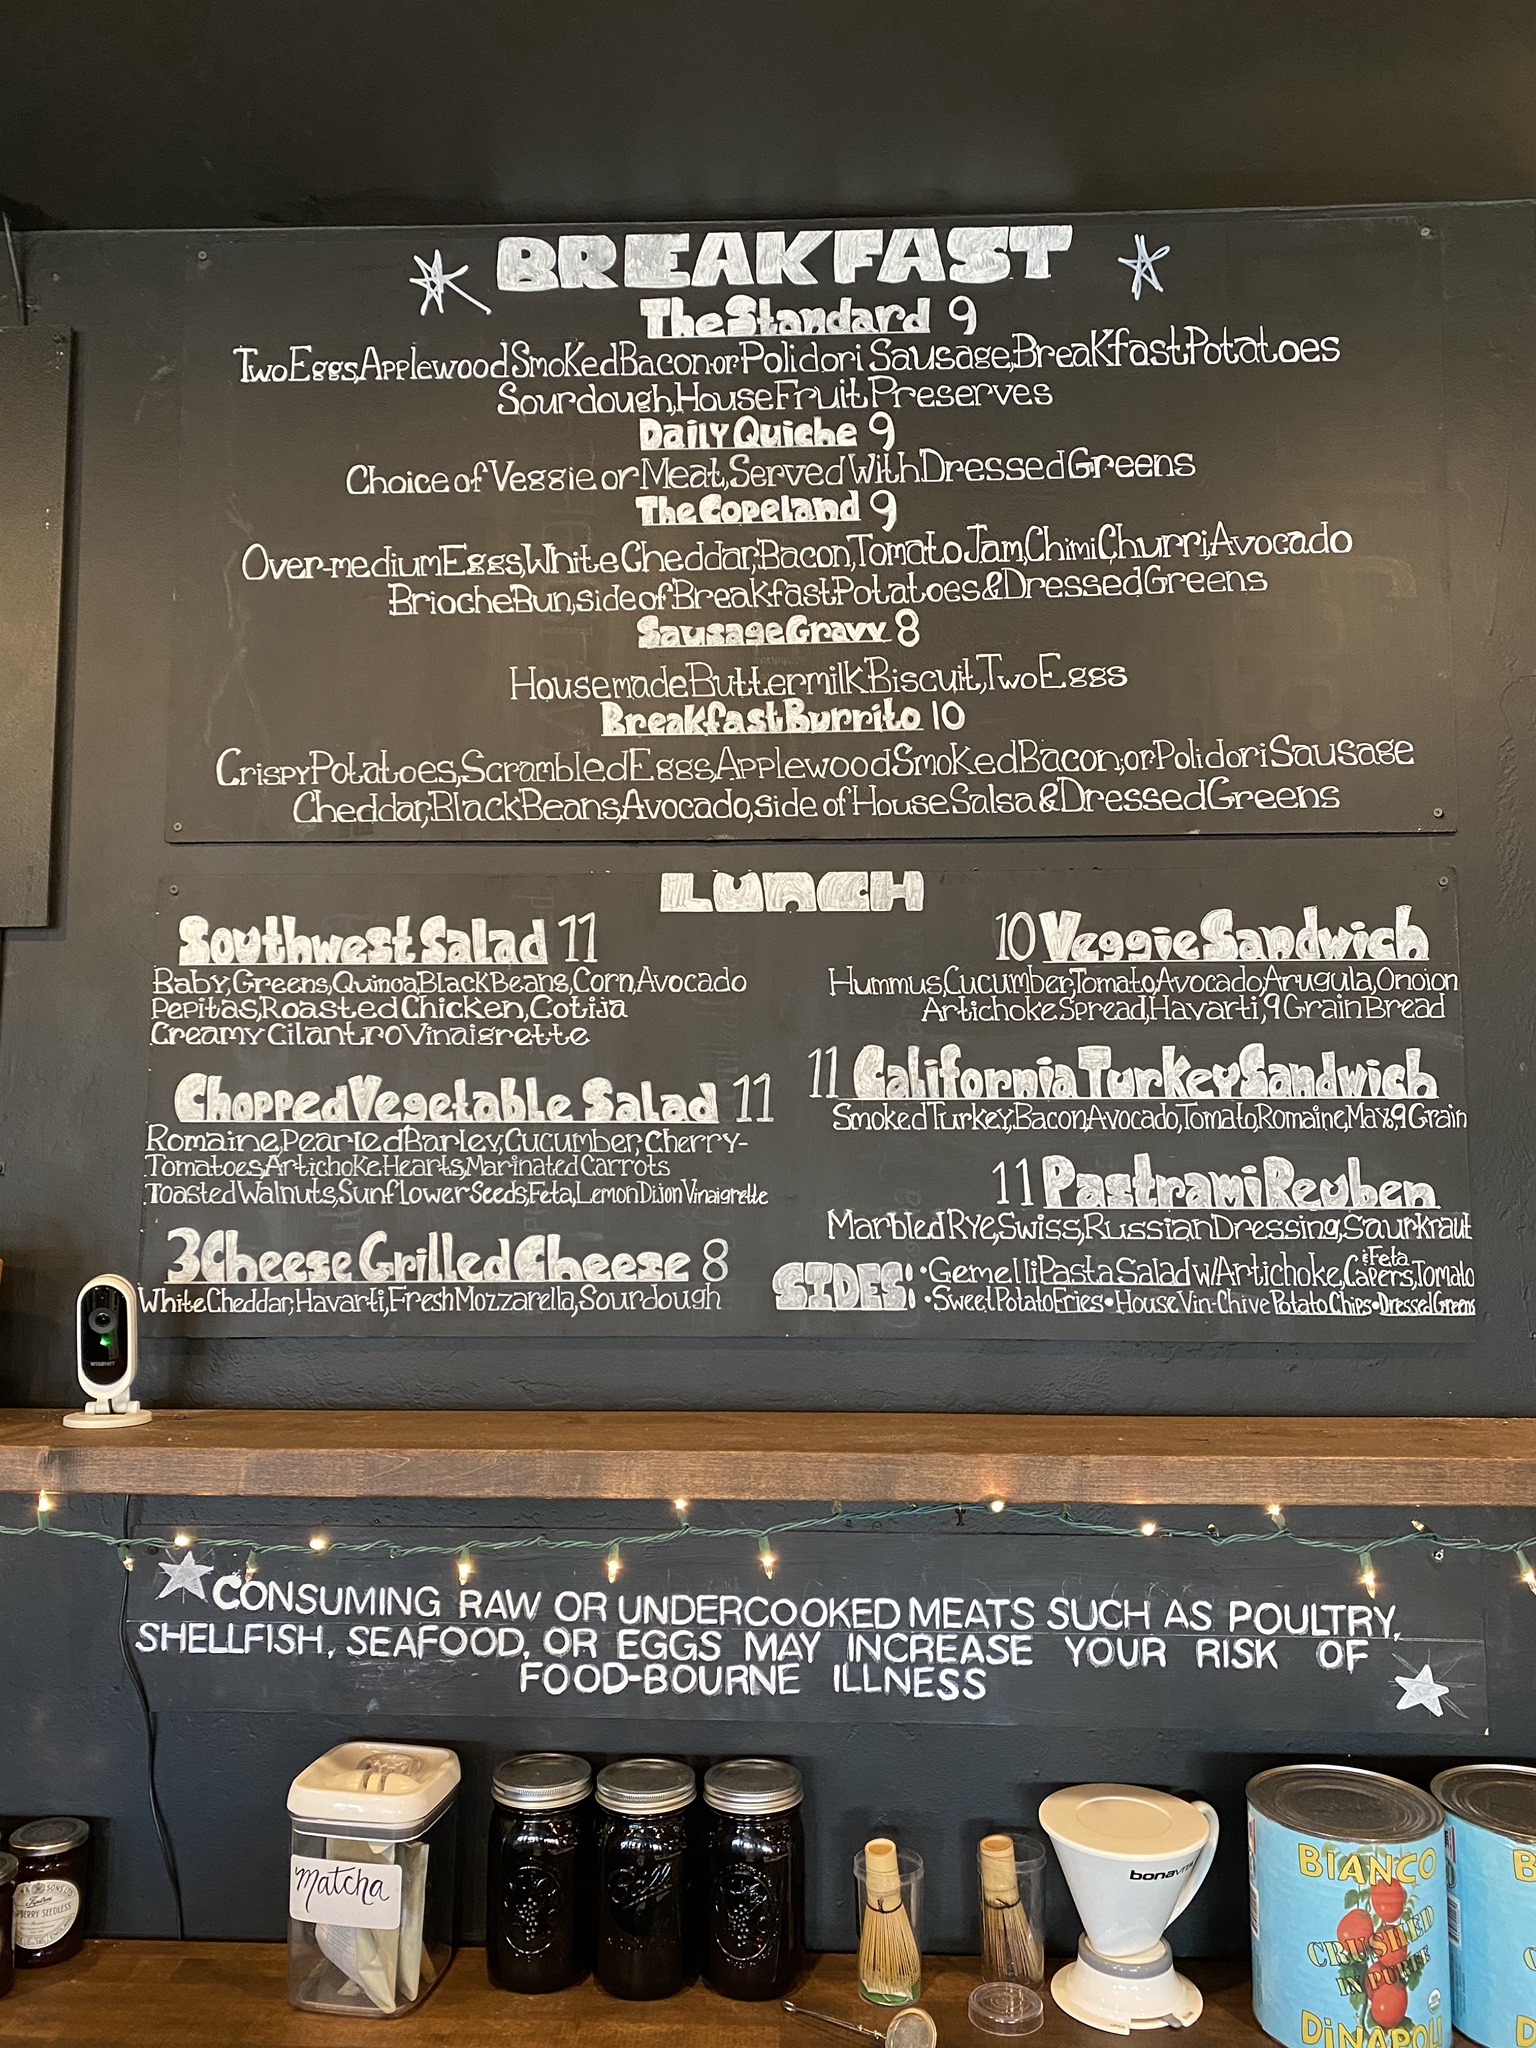 BREAKFAST
The Standard 9
Two Eggs, Applewood Smoked Bacon or Polidori Sausage, Breakfast Potatoes
Sourdough, House Fruit Preserves
Daily Quiche 9
Choice of Veggie or Meat, Served With Dressed Greens
The Copeland 9
Over-medium Eggs, White Cheddar, Bacon, Tomato Jam, Chimi Churri, Avocado
Brioche Bun, side of Breakfast Potatoes & Dressed Greens
Sausage Gravy 8
Housemade Buttermilk Biscuit, Two Eggs
Breakfast Burrito 10
Crispy Potatoes, Scrambled Eggs, Applewood Smoked Bacon, or Polidori Sausage
Cheddar, Black Beans, Avocado, side of House Salsa & Dressed Greens
LUNCH
Southwest Salad 11
Baby, Greens, Quinoa, Black Beans, Corn, Avocado
Pepitas, Roasted Chicken, Cotija
Creamy Cilantro Vinaigrette
Chopped Vegetable Salad 11
Romaine, Pearled Barley, Cucumber, Cherry-
Tomatoes, Artichoke Hearts, Marinated Carrots
Toasted Walnuts, Sunflower Seeds, Feta, Lemon Dijon Vinaigrette
3 Cheese Grilled Cheese 8
White Cheddar, Havarti, Fresh Mozzarella, Sourdough
10 Veggie Sandwich
Hummus, Cucumber, Tomato, Avocado, Arugula, Onoion
Artichoke Spread, Havarti, 9 Grain Bread
11 California Turkey Sandwich
Smoked Turkey, Bacon, Avocado, Tomato, Romaine, Mayo, 9 Grain
11 Pastrami Reuben
Marbled Rye, Swiss, Russian Dressing, Saurkraut
SIDES: • Gemelli Pasta Salad w/ Artichoke, Capers, Tomato & Feta
• Sweet Potato Fries • House Vin-Chive Potato Chips • Dressed Greens
CONSUMING RAW OR UNDERCOOKED MEATS SUCH AS POULTRY,
SHELLFISH, SEAFOOD, OR EGGS MAY INCREASE YOUR RISK OF
FOOD-BOURNE ILLNESS
Matcha
Ball
bonavita
BIANCO
CRUSHED
IN PUREE
DiNAPOLI